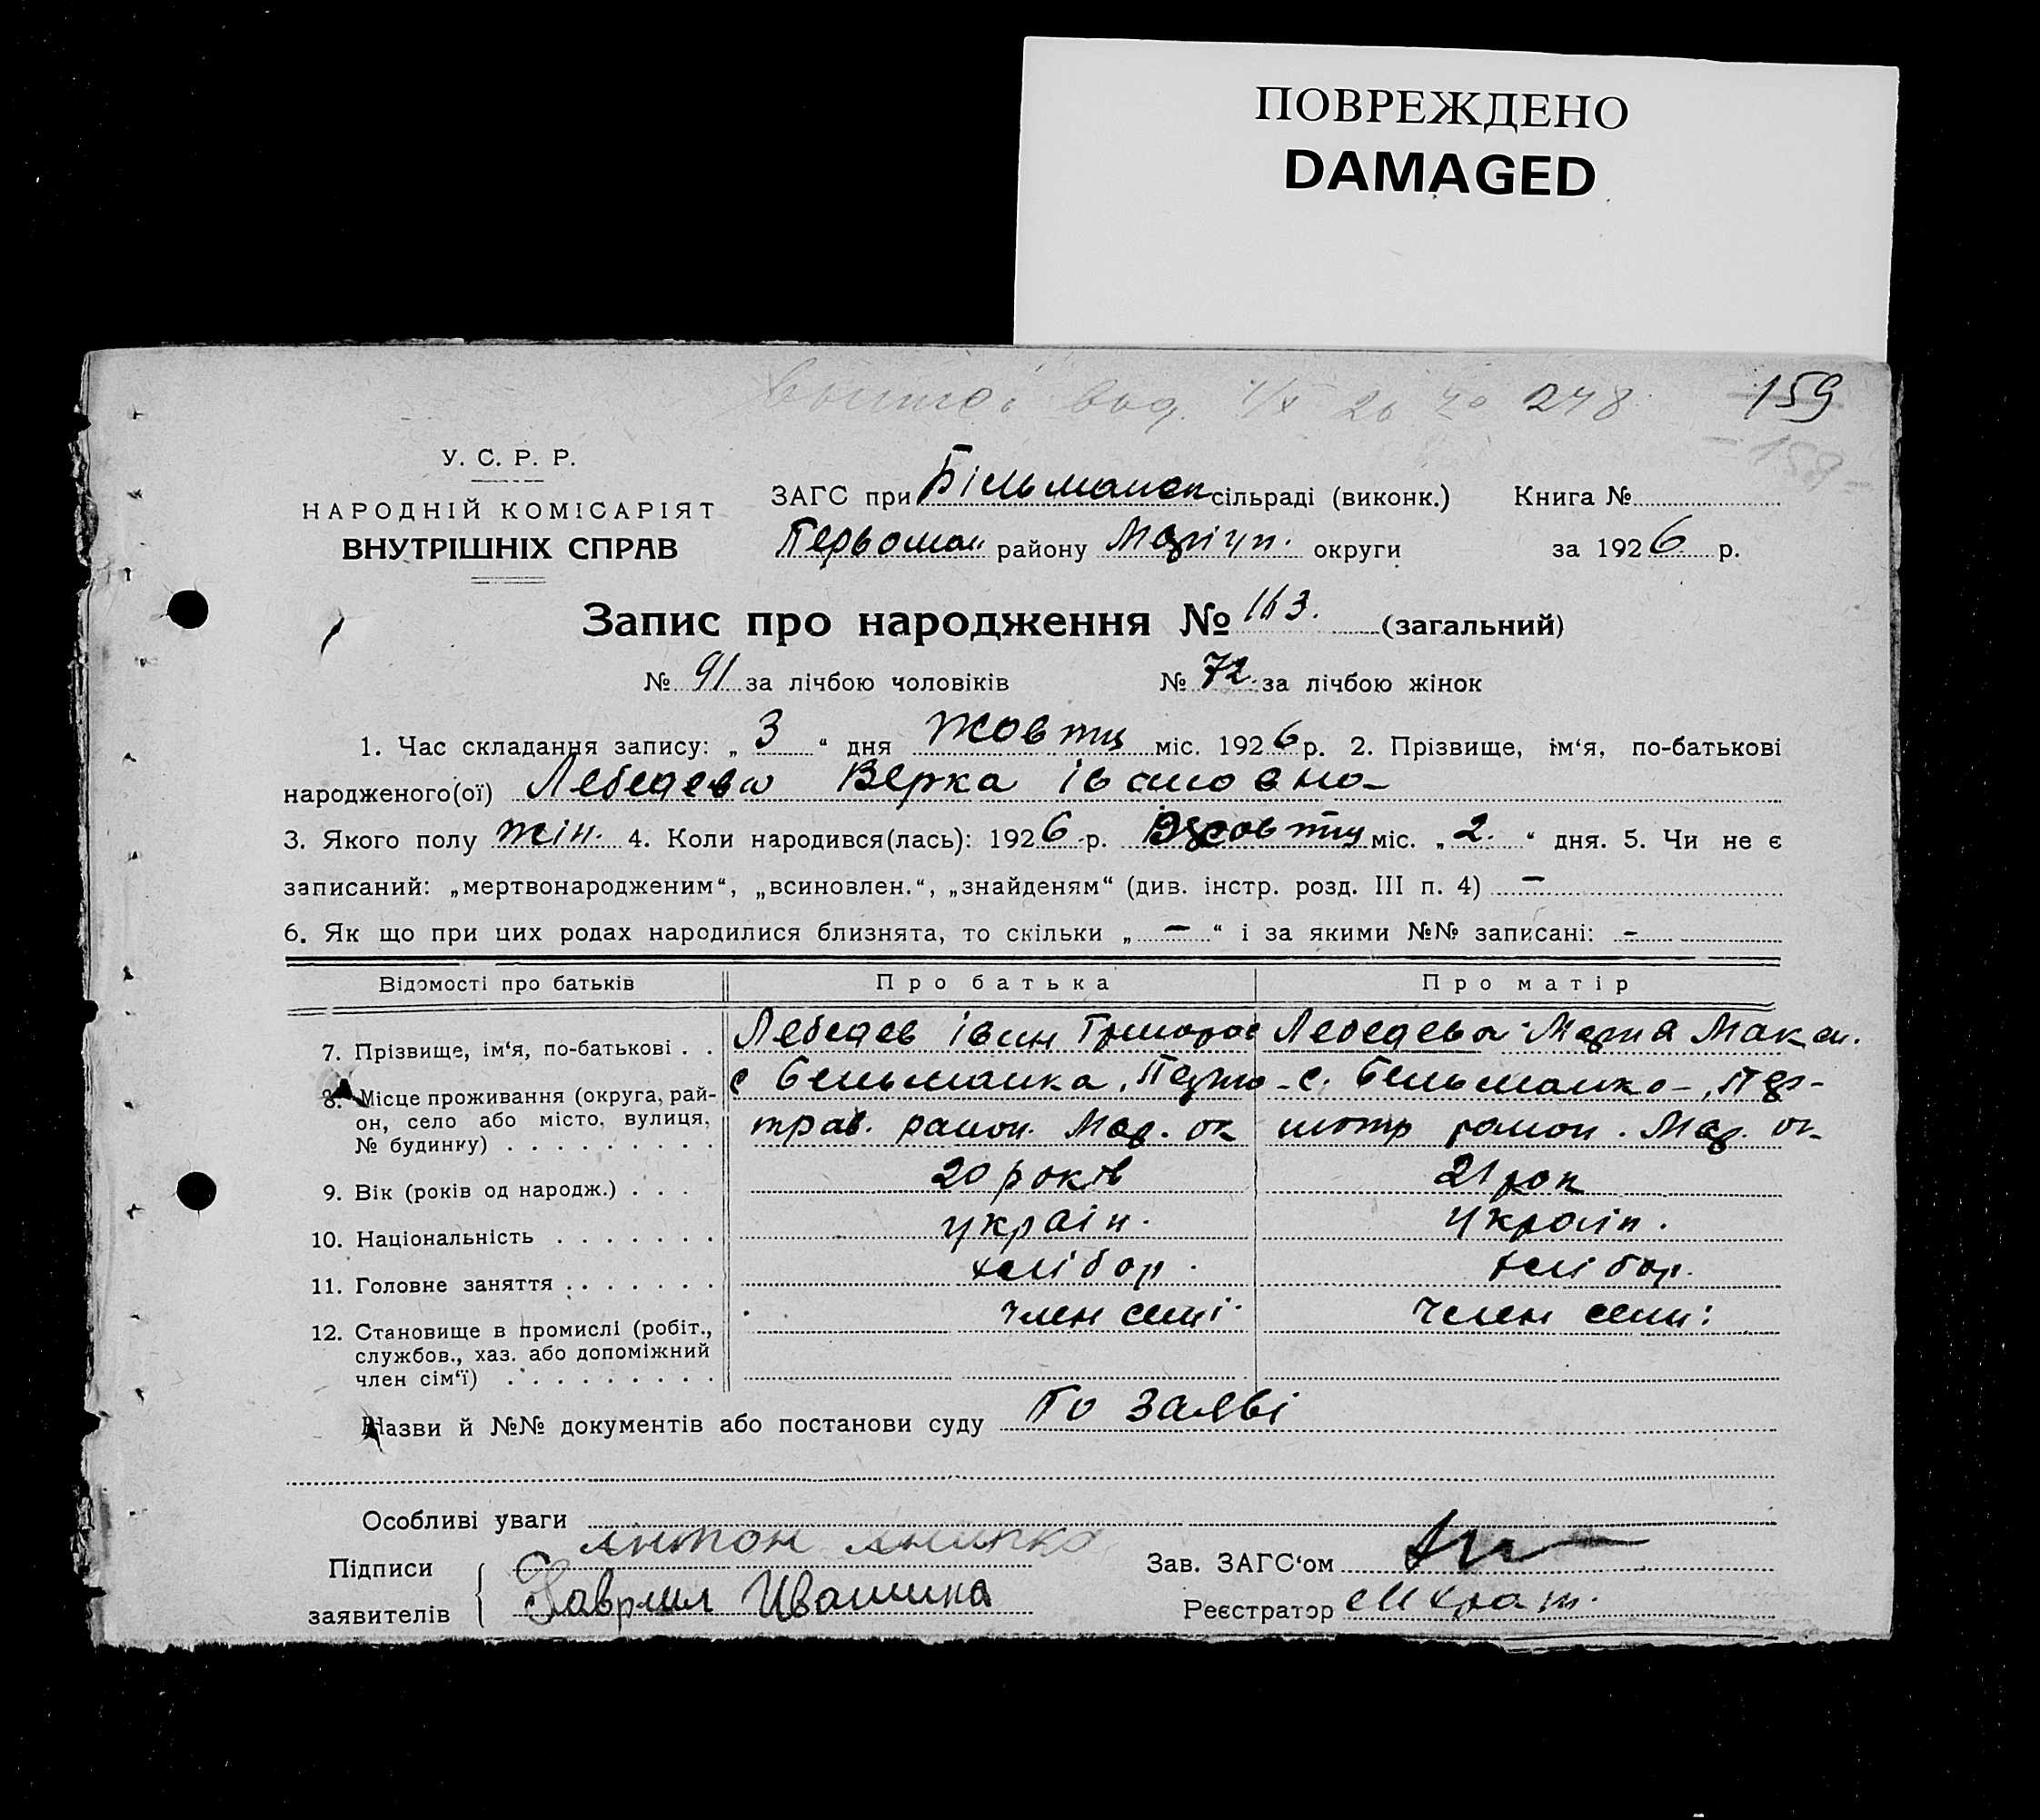 ПОВРЕЖДЕНО
DAMAGED
248 159
У. С. Р. Р.
НАРОДНІЙ КОМІСАРІЯТ
ВНУТРІШНІХ СПРАВ
ЗАГС при Більманск сільраді (виконк.) Книга №
Первомай району Маріуп. округи за 1926 р.
Запис про народження № 163. (загальний)
№ 91 за лічбою чоловіків № 72. за лічбою жінок
1. Час складання запису: „ 3 “ дня Жовтц міс. 1926 р. 2. Прізвище, ім‘я, по-батькові
народженого(ої) Лебедева Верка Івановна
3. Якого полу жін. 4. Коли народився(лась): 1926 р. Жовтц міс. „ 2. “ дня. 5. Чи не є
записаний: „мертвонародженим“, „всиновлен.“, „знайденям“ (див. інстр. розд. III п. 4) —
6. Як що при цих родах народилися близнята, то скільки „ — “ і за якими №№ записані: -
Відомості про батьків Про батька Про матір
7. Прізвище, ім‘я, по-батькові . . Лебедев Іван Григоров Лебедева Мария Макси.
8. Місце проживання (округа, рай- с Бельманка, с. Бельманка
он, село або місто, вулиця, район. Мар. ок район. Мар. ок
№ будинку)
9. Вік (років од народж.) . . . 20 років 21 рок
10. Національність україн. україн.
11. Головне заняття хлібор. хлібор.
12. Становище в промислі (робіт., член семі. член семи:
службов., хаз. або допоміжний
член сім‘ї)
Назви й №№ документів або постанови суду По заяві
Особливі уваги
Підписи Антон Зав. ЗАГС‘ом
заявителів Гаврила Ивашина Реєстратор